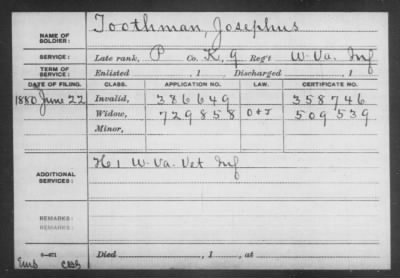 NAME OF SOLDIER: Toothman, Josephus
SERVICE: Late rank, P Co. K, 9 Reg't W. Va. Inf
TERM OF SERVICE: Enlisted , 1 Discharged , 1
DATE OF FILING. CLASS. APPLICATION NO. LAW. CERTIFICATE NO.
1880 June 22 Invalid, 386649 358746
Widow, 729858 O & J 509539
Minor,
ADDITIONAL SERVICES: H 1 W. Va. Vet Inf
REMARKS:
REMARKS:
Died , 1 , at